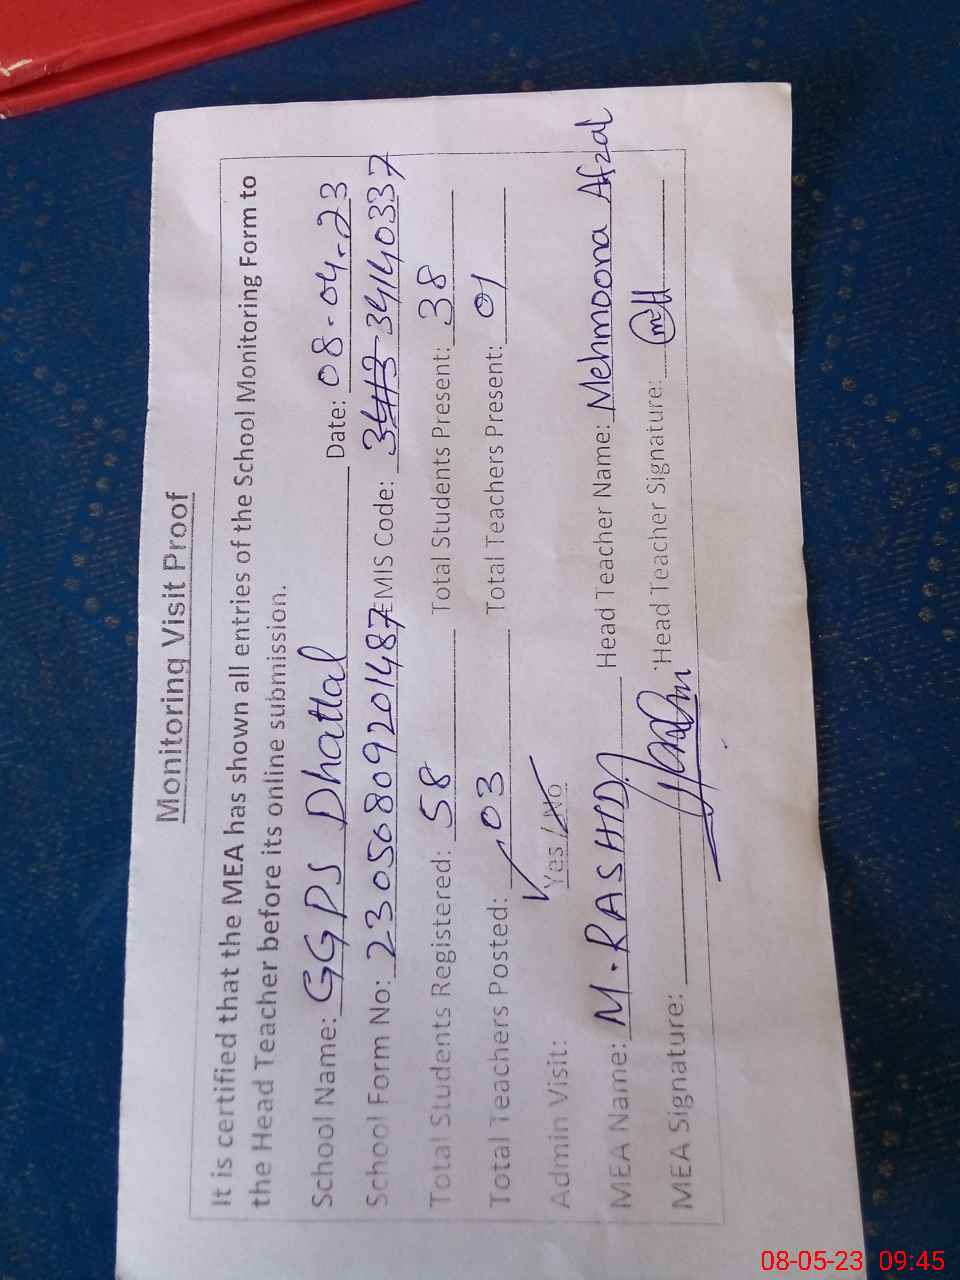 Monitoring Visit Proof
It is certified that the MEA has shown all entries of the School Monitoring Form to
the Head Teacher before its online submission.
School Name: GGPS Dhattal Date: 08-04-23
School Form No: 23056809201487 EMIS Code: 3413 34140337
Total Students Registered: 58 Total Students Present: 38
Total Teachers Posted: 03 Total Teachers Present: 01
Admin Visit: Yes / No
MEA Name: M. RASHID Head Teacher Name: Mehmoona Afzal
MEA Signature: Head Teacher Signature:
08-05-23 09:45